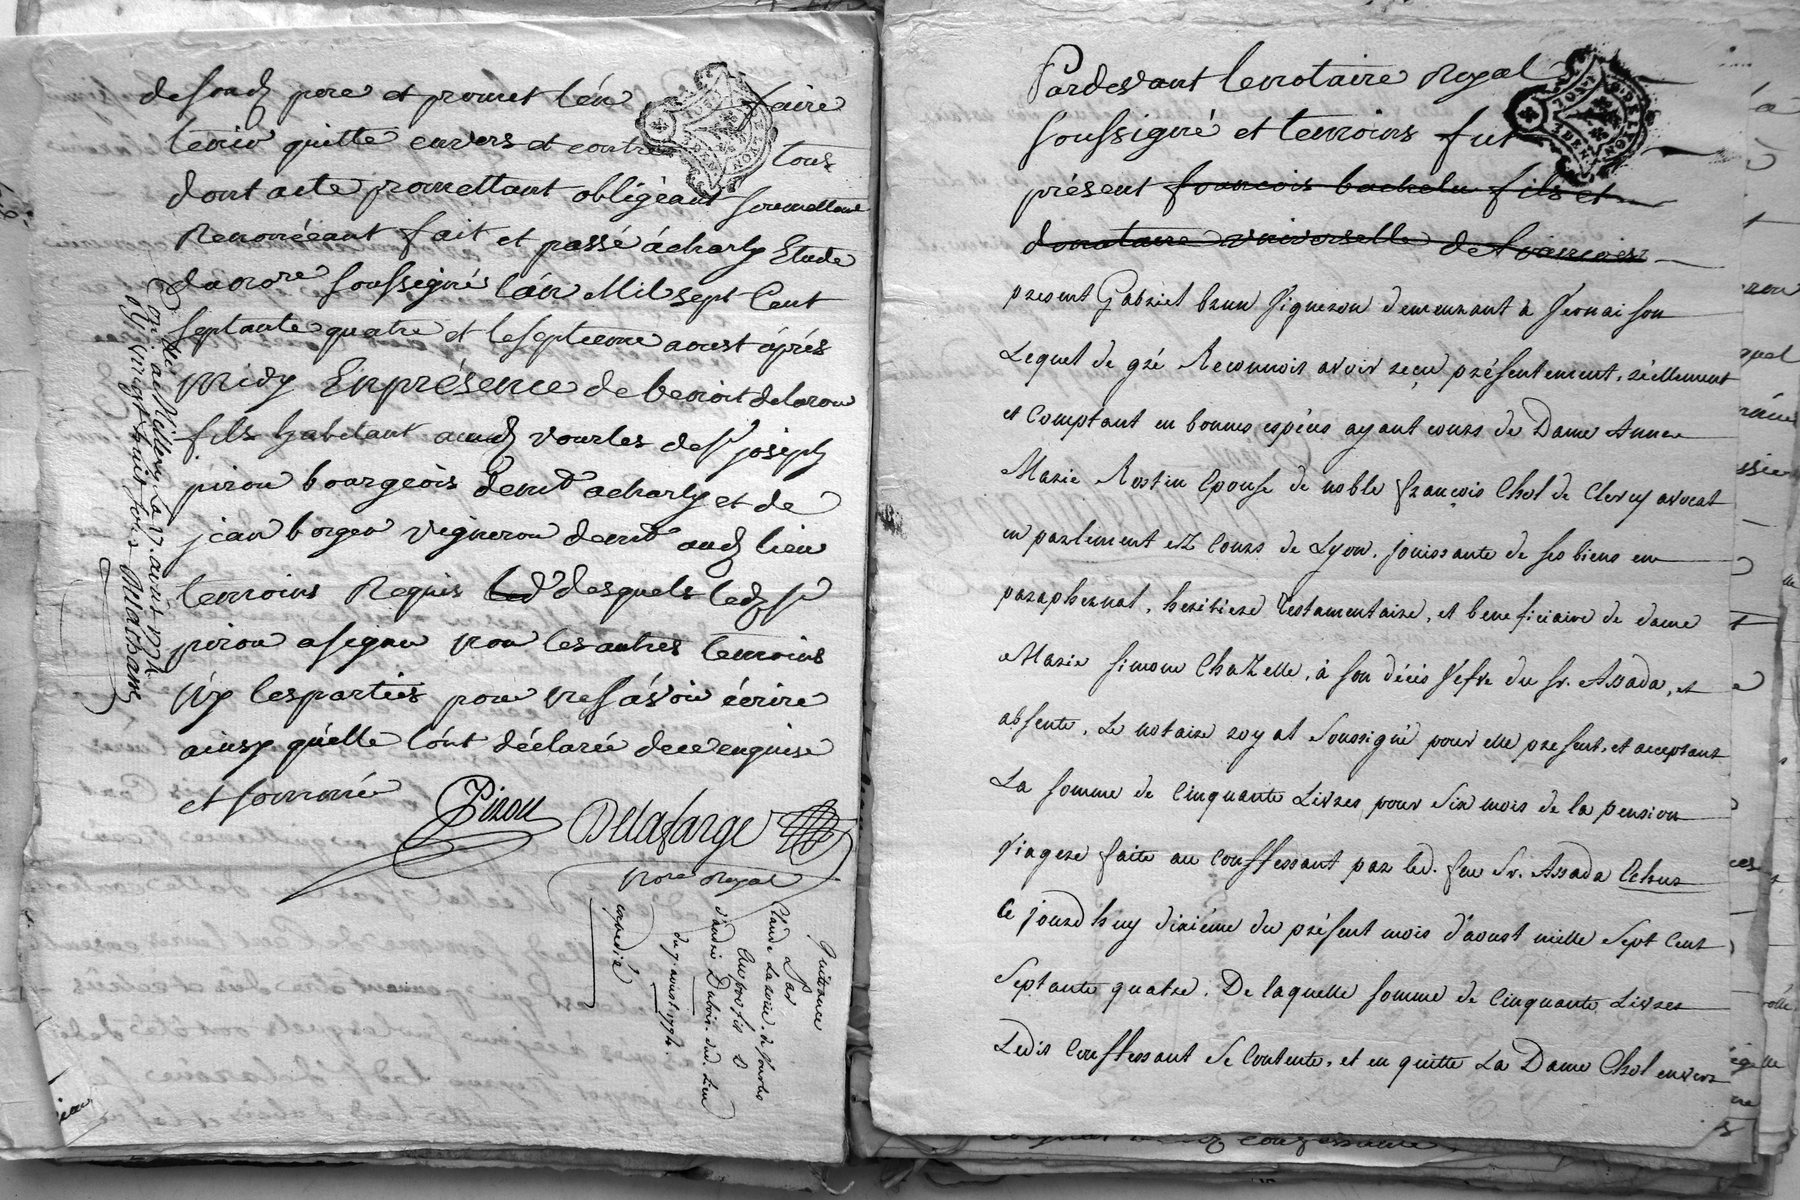 desond pere et promet l'en faire
tenir quitte envers et contre tous
dont acte promettant obligeant soumettant
Renonceant fait et passé à charly Etude
du no.re soussigné l'an Mil sept Cent
septante quatre et le septieme aoust après
midy En présence de benoit delorou
fils habitant aud vourles de Sr joseph
pirou bourgeois demt a charly et de
jean borgeo vigneron demt aud lieu
temoins Requis desquels led Sr
pirou a signé non les autres temoins
ny les parties pour ne sçavoir écrire
ainsy qu'elle l'ont déclarée de ce enquise
et sommé
Pirou Delafarge
No.re Royal
Controllé à Millery le 17. aoust 1774
Reçu vingt huit sous Marchand
Quittance
Par
Claude de Vourles
Ambroise
d'andré Dubois dud. Lieu
du 7. aoust 1774.
expedié
Pardevant le notaire Royal
soussigné et temoins fut
présent francois bachelu fils et
donataire universelle de francois
present Gabriel brun Vigneron demeurant à Vernaison
Lequel de gré Reconnois avoir reçu présentement, réellement
et Comptant en bonnes espéces ayant cours de Dame Anne
Marie Rostin Epouse de noble françois Chol de Clercy avocat
en parlement ez Cours de Lyon, jouissante de ses biens en
paraphernal, heritiere Testamentaire, et beneficiaire de dame
Marie Simone Chazelle, à son décés Vefve du Sr. Assada, et
absente, Le notaire royal Soussigné pour elle present, et acceptant
La somme de Cinquante Livres pour Six mois de la pension
Viagere faite au Conffessant par led. feu Sr. Assada Echus
Ce jourd'huy dixiéme du présent mois d'aoust mille Sept Cent
Septante quatre, De laquelle somme de Cinquante Livres
Ledit Conffessant Se Contente, et en quitte La Dame Chol envers